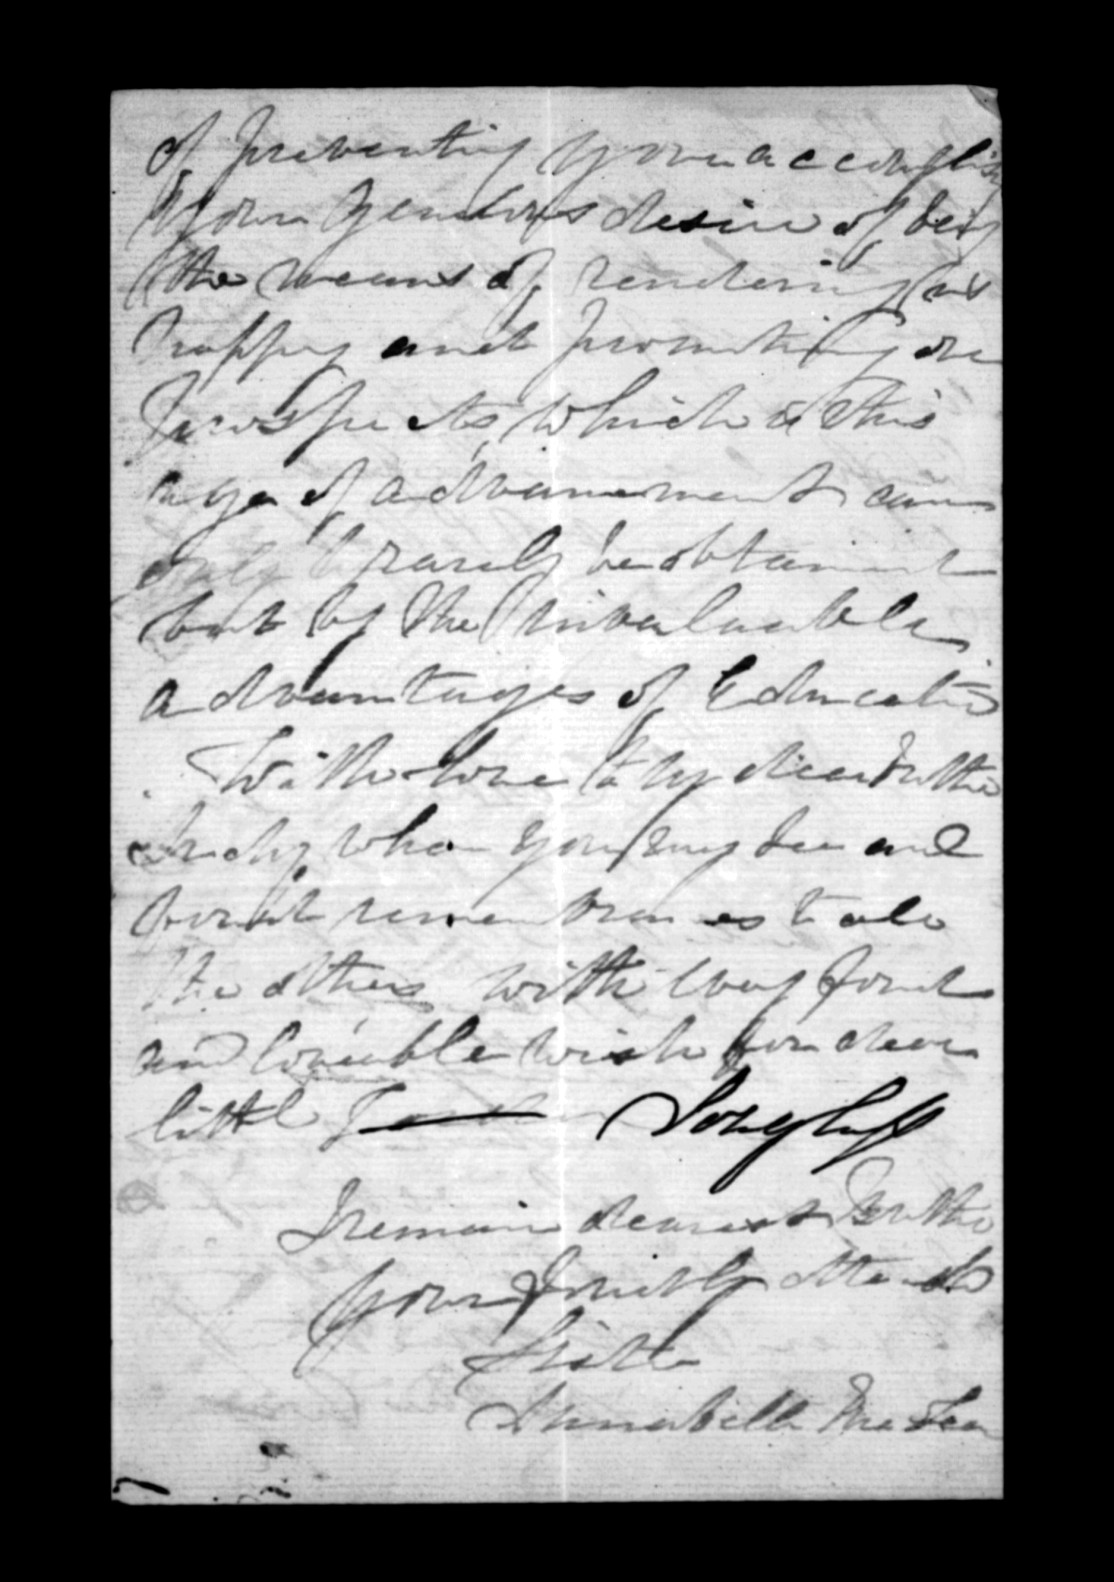 of preventing your accomplish
your generous desire of being
the means of rendering us
happy and promoting our
prospects, which in this
age of advancement can
only rarely be obtained
but by the invaluable
advantages of Educatio
With love to my dear Brothe
Andy whom you may see and
fond remembrances to all
the others with every fond
and loveable wish for dear
little Douglas
I remain dearest Brothe
your fondly attach
Sister
Annabella McLean